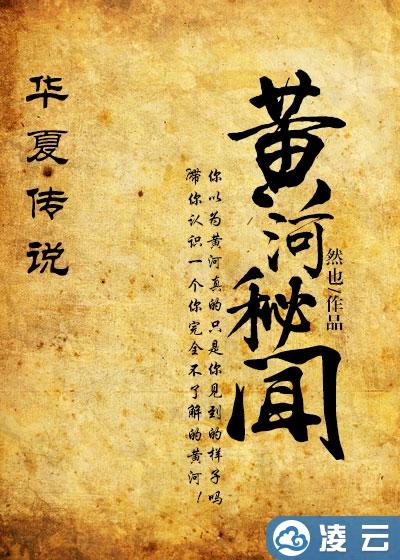 黄河秘闻
然也/作品
你以为黄河真的只是你见到的样子吗
带你认识一个你完全不了解的黄河！
华夏传说
凌云